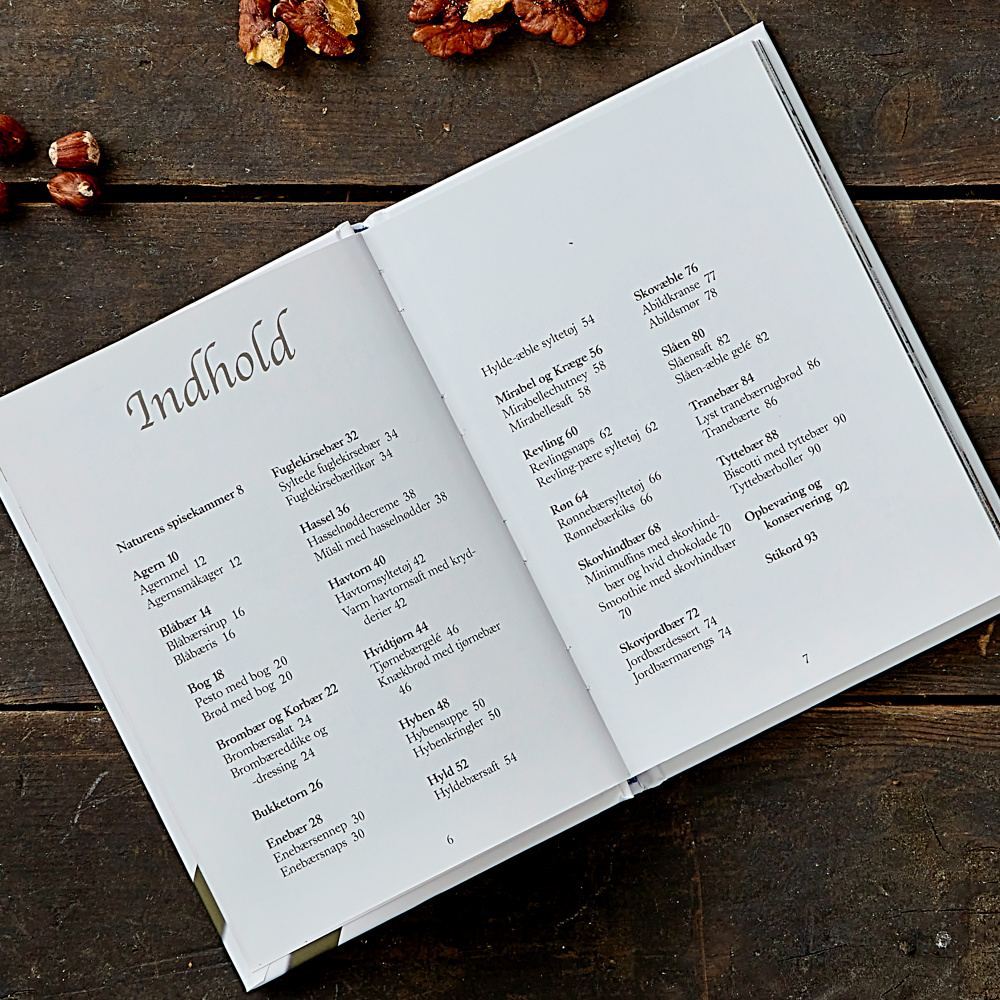 Indhold
Naturens spisekammer 8
Agern 10
Agernmel 12
Agernsmåkager 12
Blåbær 14
Blåbærsirup 16
Blåbæris 16
Bog 18
Pesto med bog 20
Brød med bog 20
Brombær og Korbær 22
Brombærsalat 24
Brombæreddike og
-dressing 24
Bukketorn 26
Enebær 28
Enebærsennep 30
Enebærsnaps 30
Fuglekirsebær 32
Syltede fuglekirsebær 34
Fuglekirsebærlikør 34
Hassel 36
Hasselnøddecreme 38
Müsli med hasselnødder 38
Havtorn 40
Havtornsyltetøj 42
Varm havtornsaft med kryd-
derier 42
Hvidtjørn 44
Tjørnebærgelé 46
Knækbrød med tjørnebær
46
Hyben 48
Hybensuppe 50
Hybenkringler 50
Hyld 52
Hyldebærsaft 54
6
Hylde-æble syltetøj 54
Mirabel og Kræge 56
Mirabellechutney 58
Mirabellesaft 58
Revling 60
Revlingsnaps 62
Revling-pære syltetøj 62
Røn 64
Rønnebærsyltetøj 66
Rønnebærkiks 66
Skovhindbær 68
Minimufins med skovhind-
bær og hvid chokolade 70
Smoothie med skovhindbær
70
Skovjordbær 72
Jordbærdessert 74
Jordbærmarengs 74
Skovæble 76
Abildkranse 77
Abildsmør 78
Slåen 80
Slåensaft 82
Slåen-æble gelé 82
Tranebær 84
Lyst tranebærrugbrød 86
Tranebærte 86
Tyttebær 88
Biscotti med tyttebær 90
Tyttebærboller 90
Opbevaring og
konservering 92
Stikord 93
7